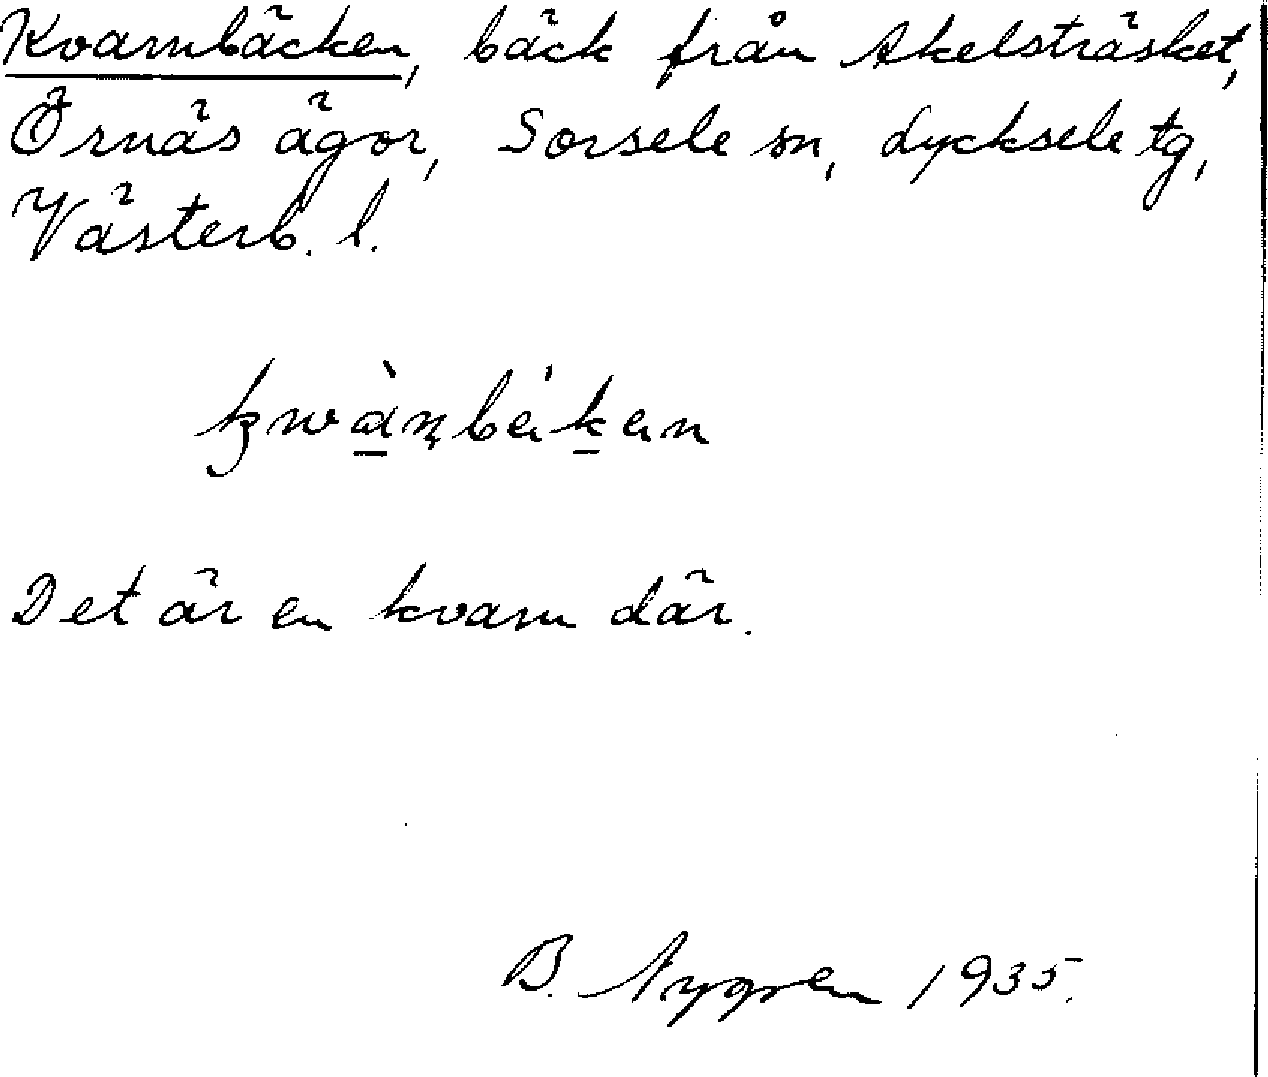 Kvarnbäcken, bäck från Akelsträsket,
Örnäs ägor, Sorsele sn, Lycksele tg,
Västerb. l.
Det är en kvarn där.
B. Nygren 1935.